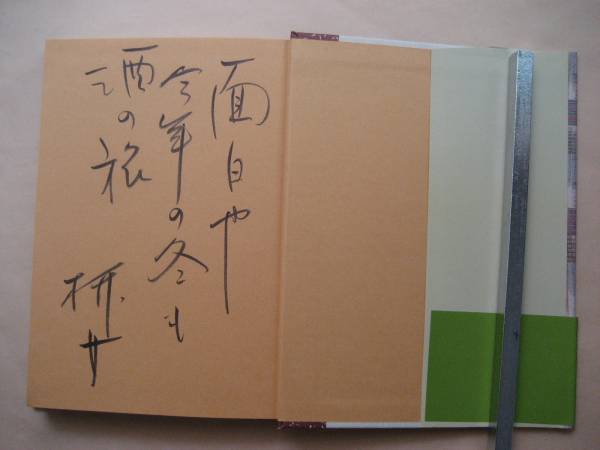 面白や
今年の冬も
酒の旅